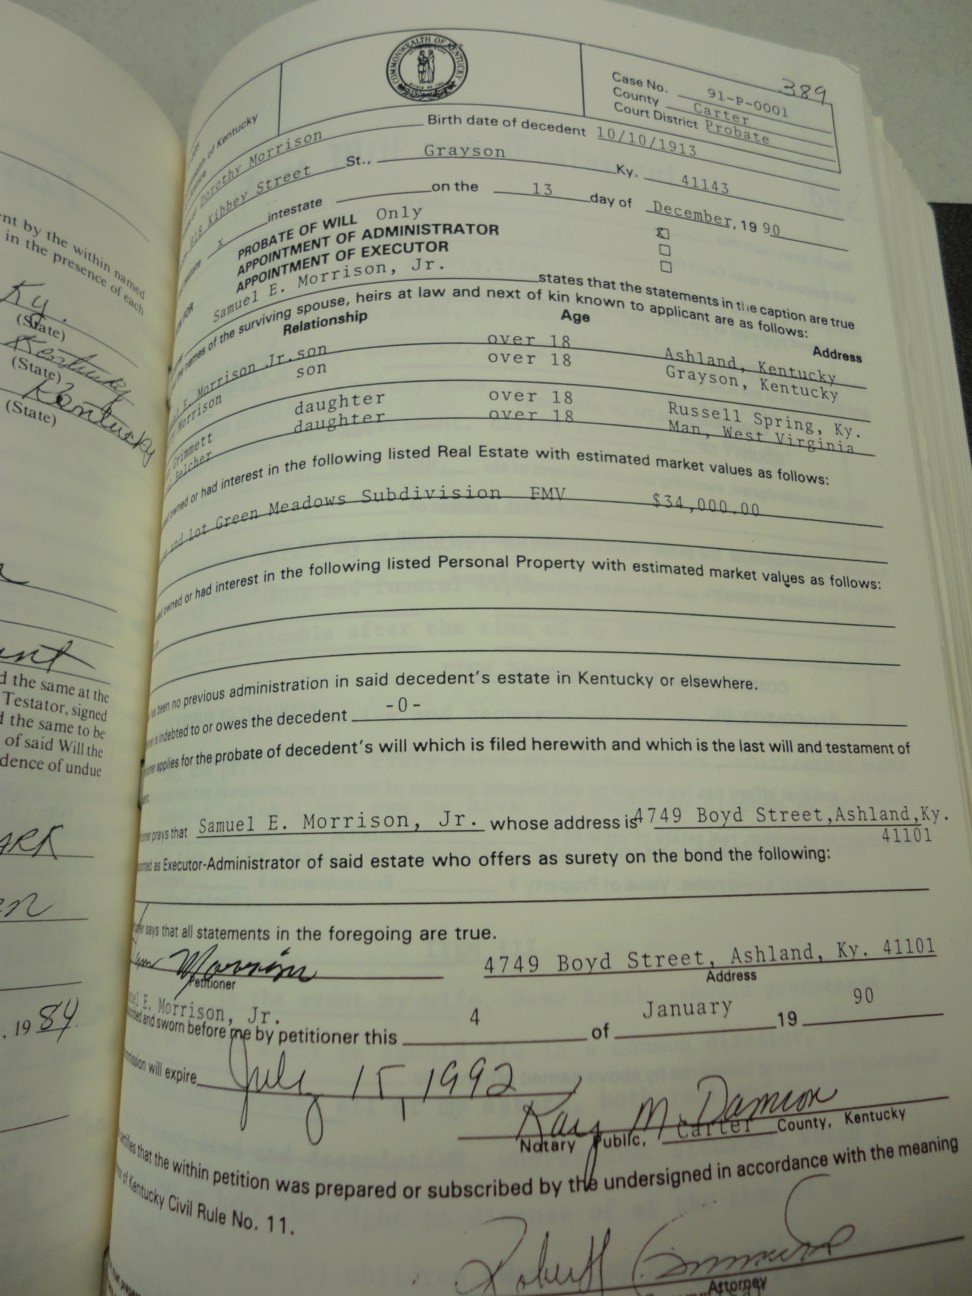 389
COMMONWEALTH OF KENTUCKY
Case No. 91-P-0001
County Carter
Court District Probate
of Kentucky
Dorothy Morrison Birth date of decedent 10/10/1913
Kibbey Street St., Grayson Ky. 41143
x intestate on the 13 day of December, 19 90
PROBATE OF WILL Only
APPOINTMENT OF ADMINISTRATOR
APPOINTMENT OF EXECUTOR
Samuel E. Morrison, Jr. states that the statements in the caption are true
the names of the surviving spouse, heirs at law and next of kin known to applicant are as follows:
Relationship Age Address
E. Morrison Jr. son over 18 Ashland, Kentucky
Morrison son over 18 Grayson, Kentucky
daughter over 18 Russell Spring, Ky.
daughter over 18 Man, West Virginia
owned or had interest in the following listed Real Estate with estimated market values as follows:
and Lot Green Meadows Subdivision FMV $34,000.00
owned or had interest in the following listed Personal Property with estimated market values as follows:
been no previous administration in said decedent's estate in Kentucky or elsewhere.
is indebted to or owes the decedent -0-
applies for the probate of decedent's will which is filed herewith and which is the last will and testament of
prays that Samuel E. Morrison, Jr. whose address is 4749 Boyd Street, Ashland, Ky.
41101
as Executor-Administrator of said estate who offers as surety on the bond the following:
says that all statements in the foregoing are true.
Morrison 4749 Boyd Street, Ashland, Ky. 41101
Petitioner Address
E. Morrison, Jr.
and sworn before me by petitioner this 4 of January 19 90
will expire July 15, 1992
Kay M. Damron
Notary Public, Carter County, Kentucky
that the within petition was prepared or subscribed by the undersigned in accordance with the meaning
of Kentucky Civil Rule No. 11.
Robert
Attorney
nt by the within named
in the presence of each
Ky.
(State)
Kentucky
(State)
Kentucky
(State)
d the same at the
Testator, signed
d the same to be
of said Will the
dence of undue
, 19 84